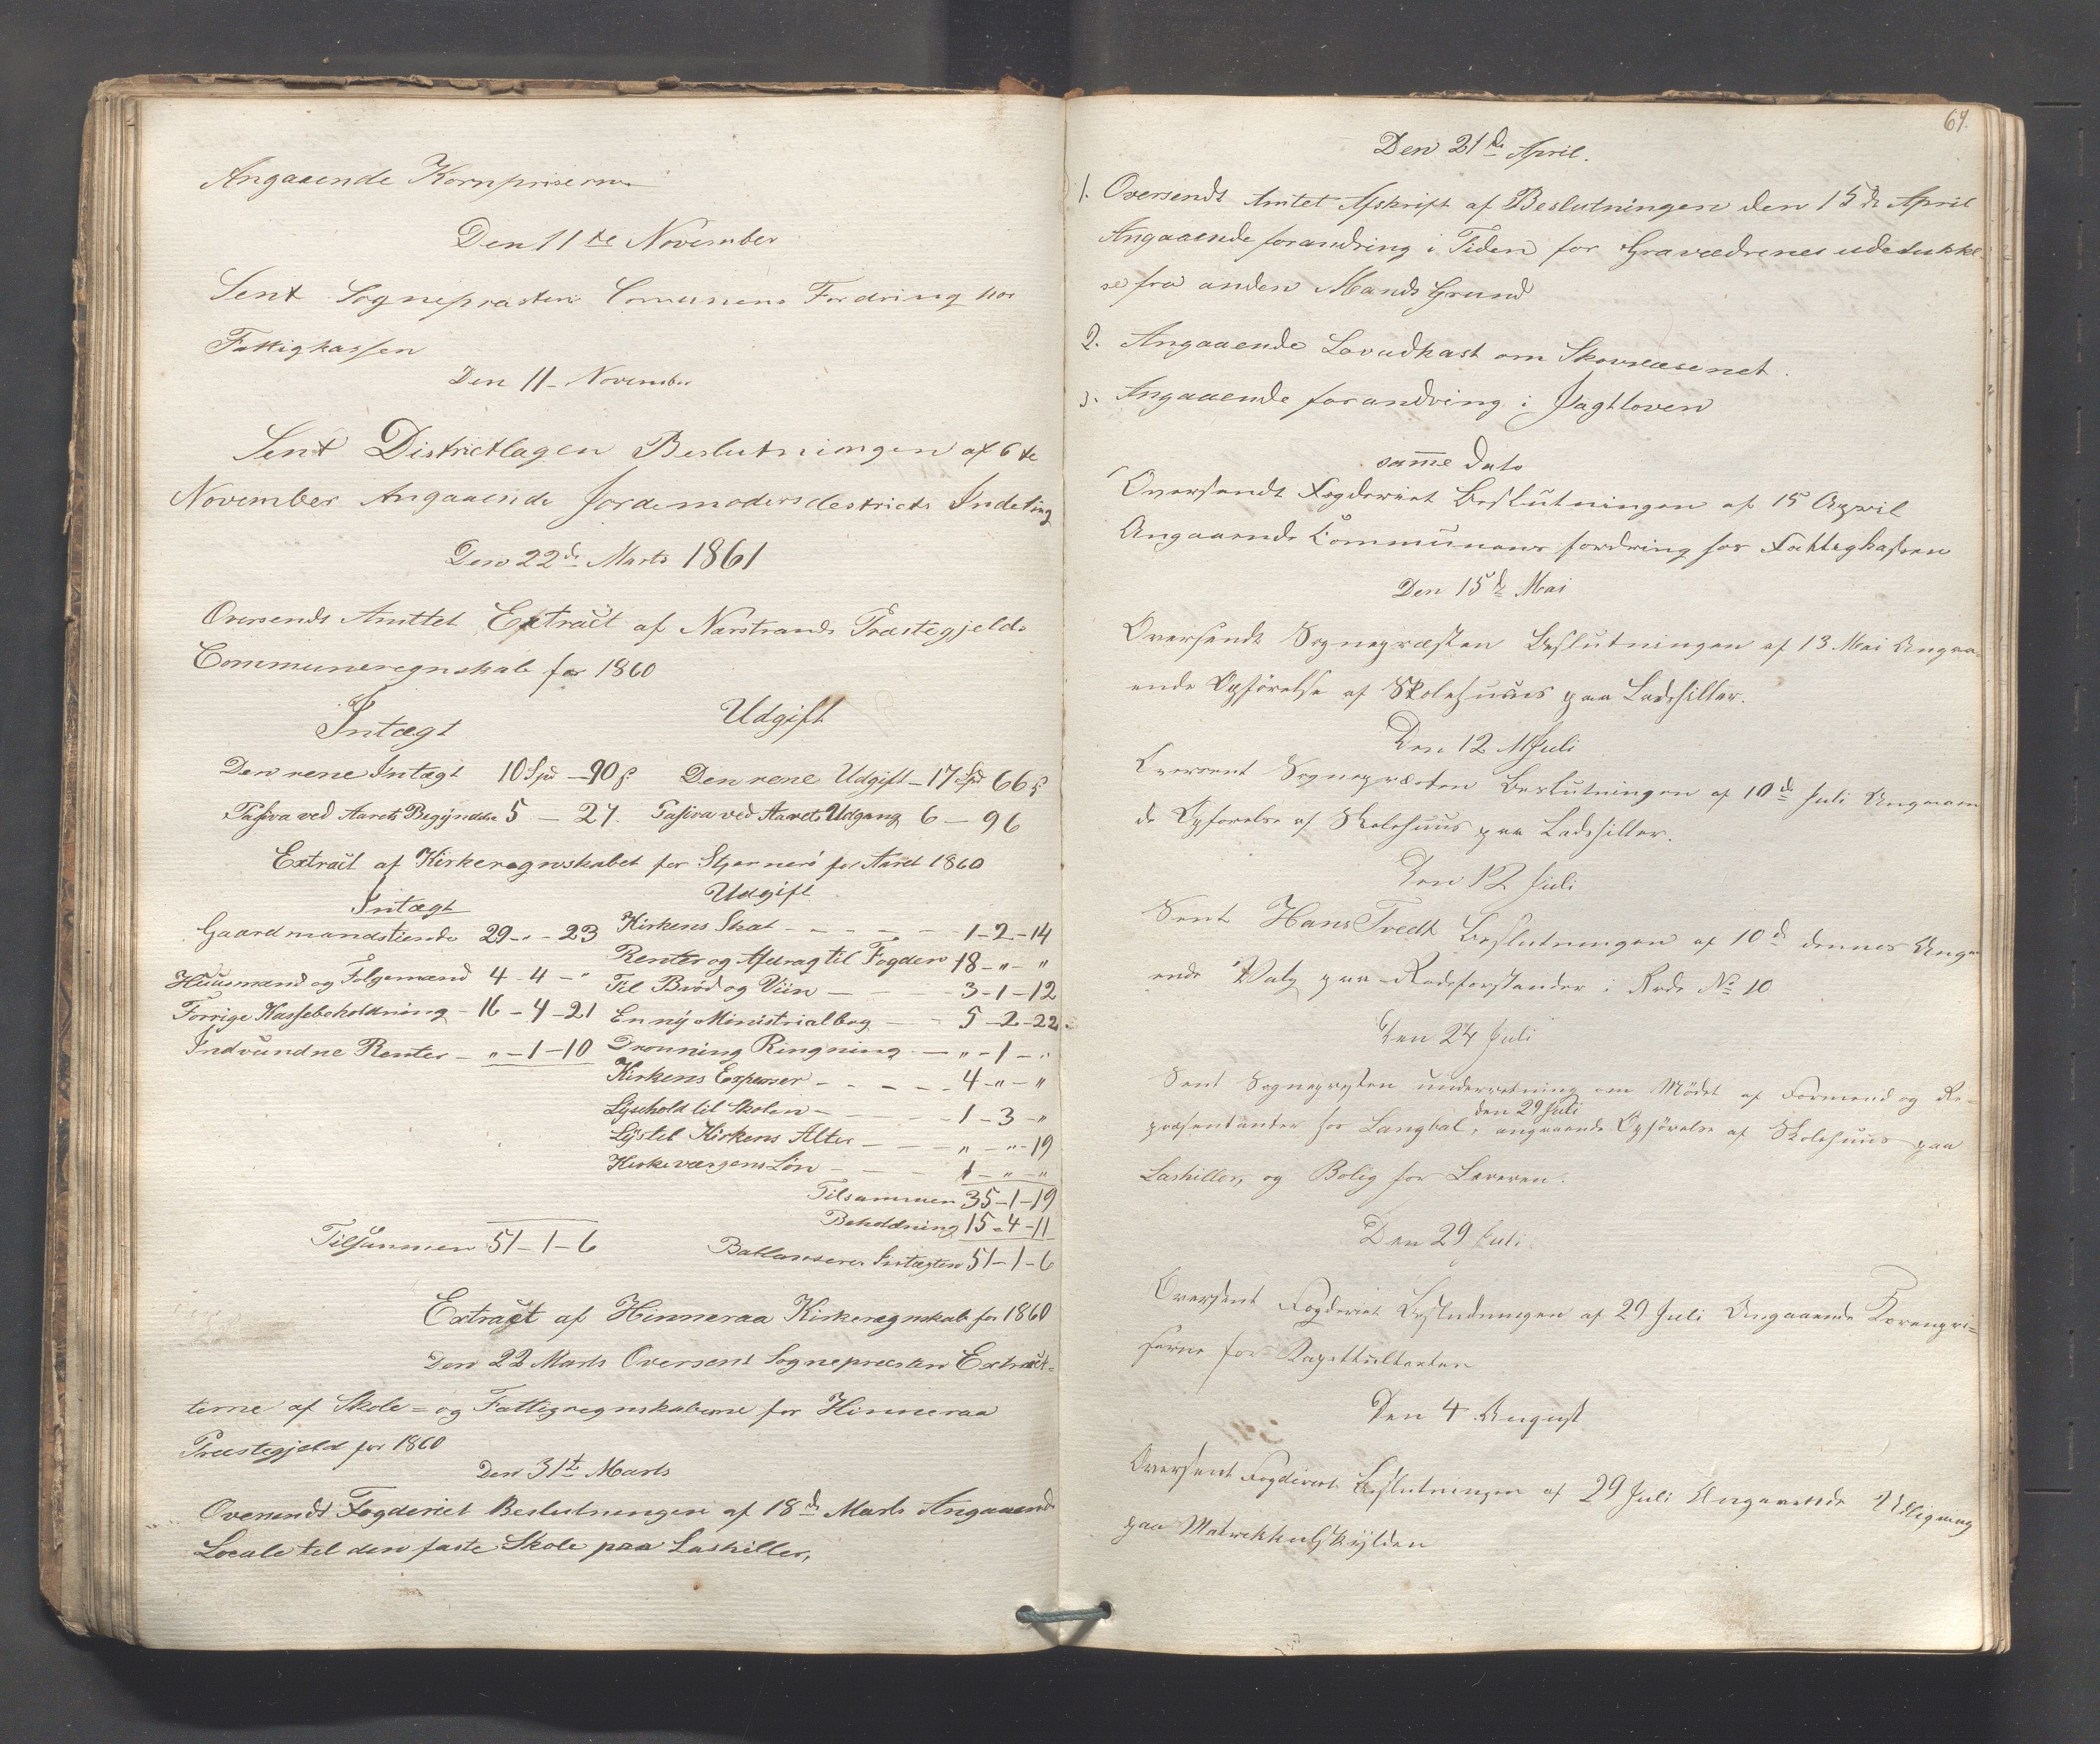 Angaaende Kornpriserne
Den 11te November
Sent Sognepræsten Comunens Fordring hos
Fattigkassen
Den 11 - November
Sent Districtlagen Beslutningen af 6te
November Angaaende Jordemodersdestricts Indeling
Den 22de Marts 1861
Oversendt Amttet Extract af Narstrands Præstegjelds
Communeregnskab for 1860
Intægt Udgift
Den rene Intægt 10 Spd - 90 s Den rene Udgift - 17 Spd 66 s
Passiva ved Aarets Begyndelse 5 - 27. Passiva ved Aarets Udgang 6 - 96
Extract af Kirkeregnskabet for Stjernerö for Aaret 1860
Intægt Udgift
Gaardmandstiende 29 - " - 23 Kirkens Skat - - - 1 - 2 - 14
Renter og Afdrag til Fogden 18 - " - "
Huusmænd og Følgemænd 4 - 4 - " Til Brød og Viin - 3 - 1 - 12
Forrige Kassebeholdning - 16 - 4 - 21 En ny Ministrialbog - 5 - 2 - 22
Indvundne Renter - " - 1 - 10 Dronning Ringning - " - 1 - "
Kirkens Expenser - - - 4 - " - "
Lysehold til Skolen - - 1 - 3 - "
Lys til Kirkens Alter - - " - " - 19
Kirkeværgens Løn - - 1 - " - "
Tilsammen 35 - 1 - 19
Beholdning 15 - 4 - 11
Tilsammen 51 - 1 - 6 Ballanserer Intægten 51 - 1 - 6
Extract af Hinneraa Kirkeregnskab for 1860
Den 22 Marts Oversent Sognepræsten Extract-
terne af Skole= og Fattigregnskaberne for Hinneraa
Præstegjeld for 1860
Den 31te Marts
Oversendt Fogderiet Beslutningen af 18de Marts Angaaende
Locale til den faste Skole paa Laskiller,
69.
Den 21de April.
1. Oversendt Amtet Afskrift af Beslutningen den 15de April
Angaaende forandring i Tiden for Gravædrenes udelukkel
se fra anden Mands Grund
2. Angaaende Lovudkast om Skovvæsenet.
3. Angaaende forandring i Jagtloven
samme Dato
Oversendt Fogderiet Beslutningen af 15 April
Angaaende Communens fordring hos Fattigkassen
Den 15de Mai
Oversendt Sognepræsten Beslutningen af 13 Mai Angaa=
ende Opførelse af Skolehuus paa Ladshiller.
Den 12 Juli
Oversent Sognepræsten Beslutningen af 10de Juli Angaaen
de Opførelse af Skolehuus paa Ladshiller.
Den 12 Juli
Sent Hans Tvedt Beslutningen af 10de dennes Anga
ende Valg paa Rodeforstander i Rode No 10
Den 24 Juli
Sent Sognepresten underretning om Mødet af Formend og Re=
præsentanter hos Langbal, den 29 Juli angaaende Opførelse af Skolehuus paa
Lashiller, og Bolig for Læreren.
Den 29 Juli
Oversent Fogderiet Beslutningen af 29 Juli Angaaende Korenpri=
serne for Kapittultaxten
Den 4 August
Oversent Fogderiet Beslutningen af 29 Juli Angaaende Udligning
paa Matrikkulskylden